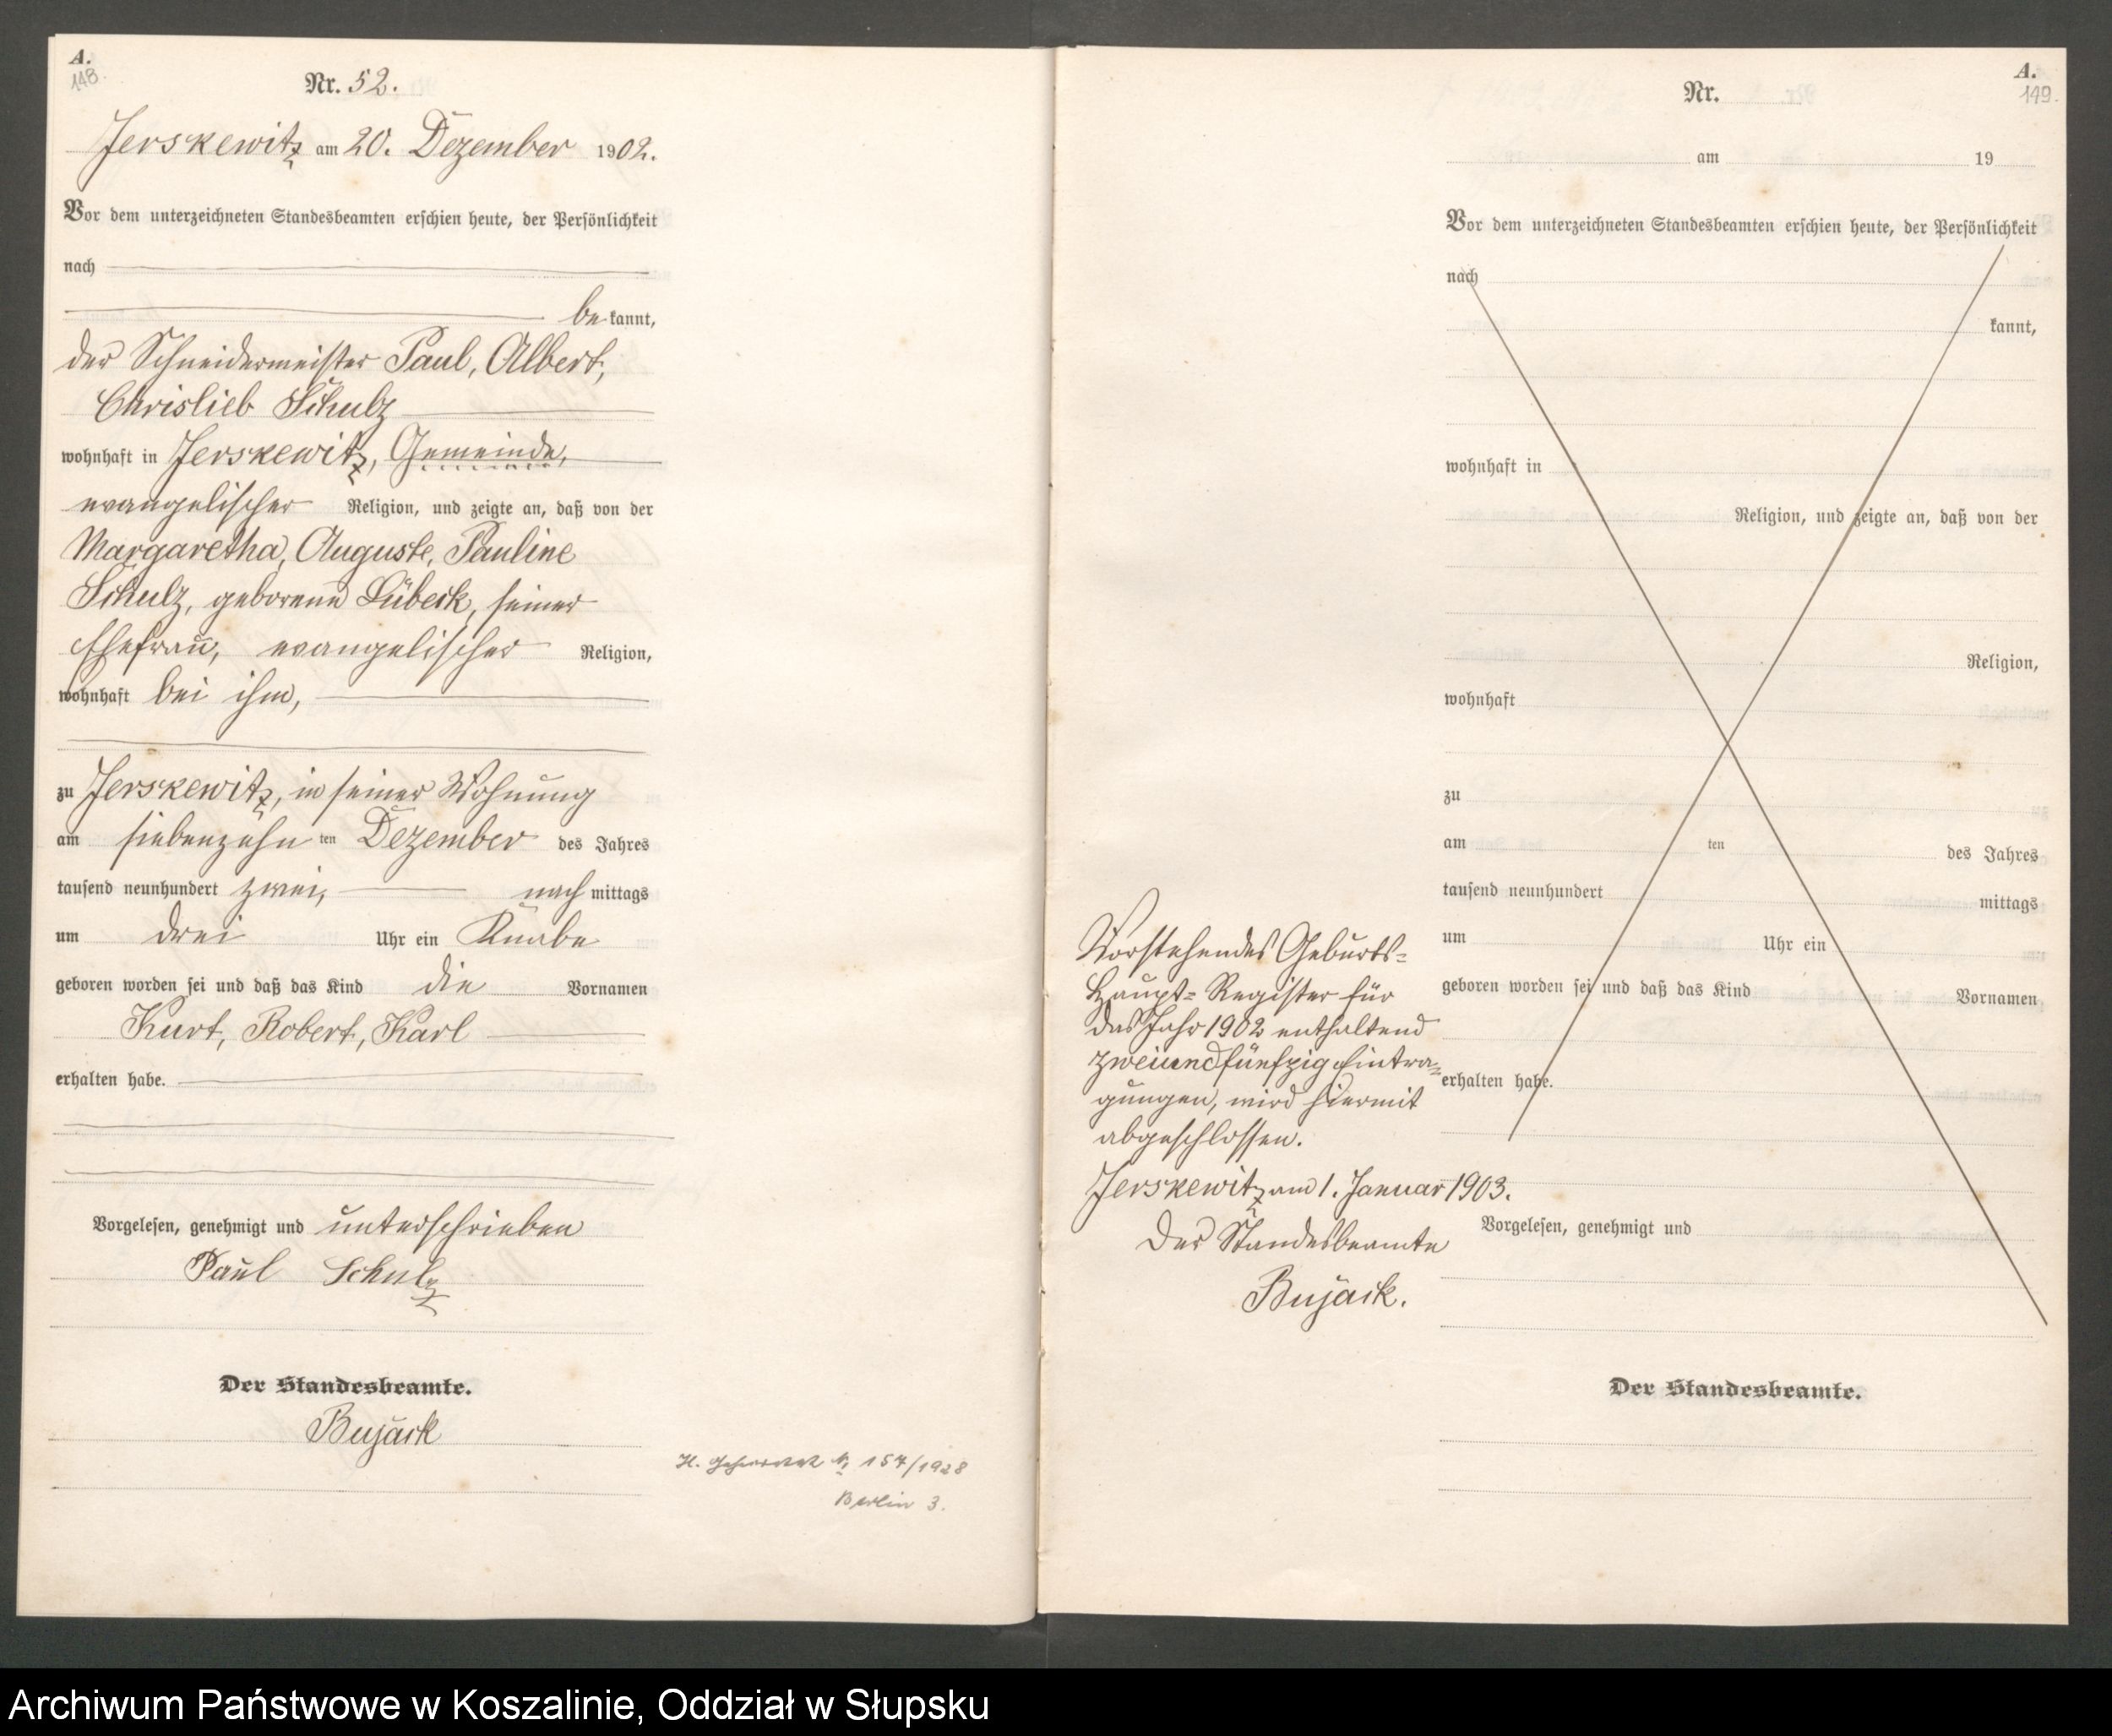 A.
148.
Nr. 52.
Jerskewitz am 20. Dezember 1902.
Vor dem unterzeichneten Standesbeamten erschien heute, der Persönlichkeit
nach
be kannt,
der Schneidermeister Paul, Albert,
Chrislieb Schulz
wohnhaft in Jerskewitz, Gemeinde,
evangelischer Religion, und zeigte an, daß von der
Margaretha, Auguste, Pauline
Schulz, geborene Lübeck, seiner
Ehefrau, evangelischer Religion,
wohnhaft bei ihm,
zu Jerskewitz, in seiner Wohnung
am siebenzehn ten Dezember des Jahres
tausend neunhundert zwei, nach mittags
um drei Uhr ein Knabe
geboren worden sei und daß das Kind die Vornamen
Kurt, Robert, Karl
erhalten habe.
Vorgelesen, genehmigt und unterschrieben
Paul Schulz
Der Standesbeamte.
Bujack
H. Geheiratet Nr 157/1928
Berlin 3.
A.
149.
Nr.
am 19
Vor dem unterzeichneten Standesbeamten erschien heute, der Persönlichkeit
nach
kannt,
wohnhaft in
Religion, und zeigte an, daß von der
Religion,
wohnhaft
zu
am ten des Jahres
tausend neunhundert mittags
um Uhr ein
geboren worden sei und daß das Kind Vornamen
erhalten habe.
Vorgelesen, genehmigt und
Der Standesbeamte.
Vorstehendes Geburts-
Haupt-Register für
das Jahr 1902 enthaltend
zweiundfünfzig Eintra-
gungen, wird hiermit
abgeschlossen.
Jerskewitz am 1. Januar 1903.
Der Standesbeamte
Bujack.
Archiwum Państwowe w Koszalinie, Oddział w Słupsku